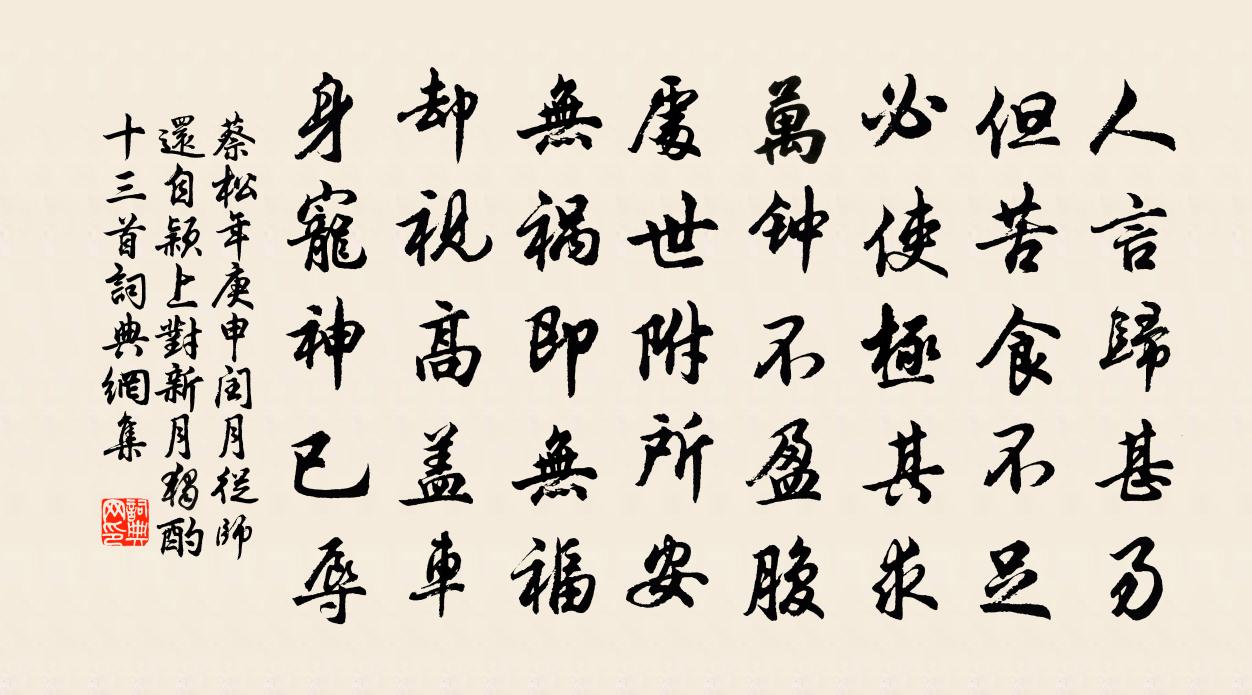 人言歸甚易
但苦食不足
必使極其求
萬钟不盈腹
處世附所安
無祸即無福
却視高盖車
身寵神已辱
蔡松年庚申闰月從師
還自颖上對新月獨酌
十三首詞典網集
詞典网印